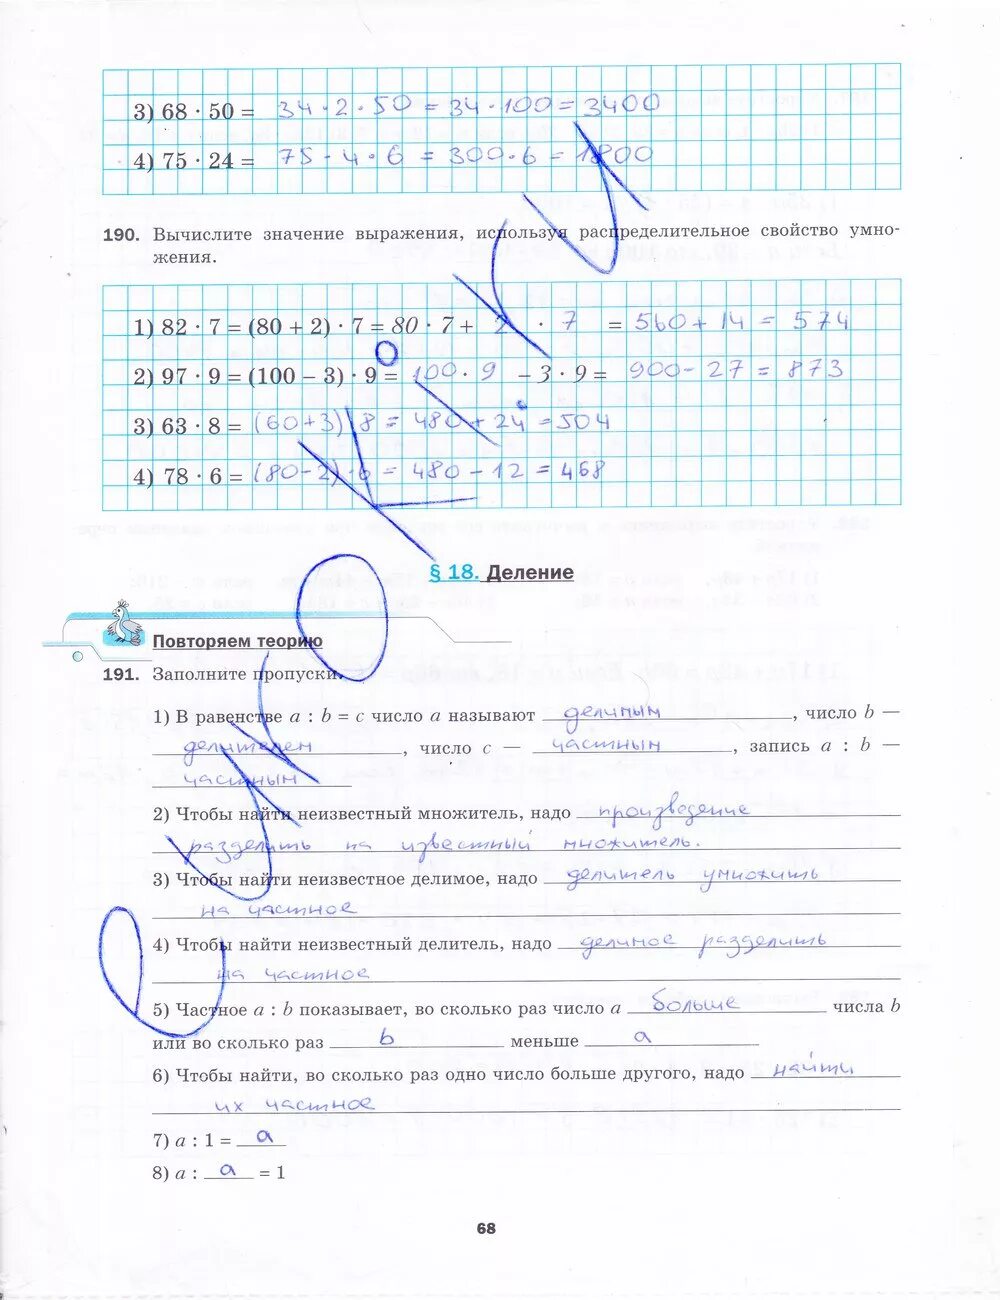 3) 68 · 50 = 34 · 2 · 50 = 34 · 100 = 3400
4) 75 · 24 = 75 · 4 · 6 = 300 · 6 = 1800
190. Вычислите значение выражения, используя распределительное свойство умно-
жения.
1) 82 · 7 = (80 + 2) · 7 = 80 · 7 + 2 · 7 = 560 + 14 = 574
2) 97 · 9 = (100 – 3) · 9 = 100 · 9 – 3 · 9 = 900 - 27 = 873
3) 63 · 8 = (60+3) 8 = 480 + 24 = 504
4) 78 · 6 = (80-2) · 6 = 480 - 12 = 468
§ 18. Деление
Повторяем теорию
191. Заполните пропуски.
1) В равенстве a : b = c число a называют делимым, число b —
делителем, число c — частным, запись a : b —
частным
2) Чтобы найти неизвестный множитель, надо произведение
разделить на известный множитель.
3) Чтобы найти неизвестное делимое, надо делитель умножить
на частное
4) Чтобы найти неизвестный делитель, надо делимое разделить
на частное
5) Частное a : b показывает, во сколько раз число a больше числа b
или во сколько раз b меньше a
6) Чтобы найти, во сколько раз одно число больше другого, надо найти
их частное
7) a : 1 = a
8) a : a = 1
68